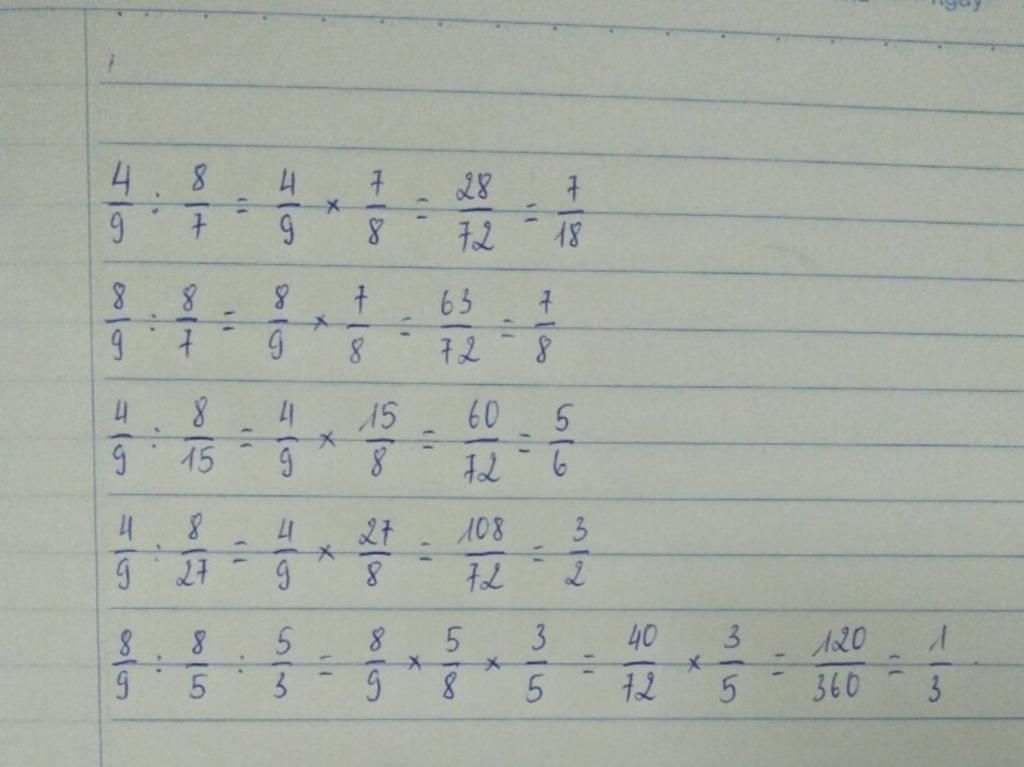 ngày
4/9 : 8/7 = 4/9 × 7/8 = 28/72 = 7/18
8/9 : 8/7 = 8/9 × 7/8 = 63/72 = 7/8
4/9 : 8/15 = 4/9 × 15/8 = 60/72 = 5/6
4/9 : 8/27 = 4/9 × 27/8 = 108/72 = 3/2
8/9 : 8/5 : 5/3 = 8/9 × 5/8 × 3/5 = 40/72 × 3/5 = 120/360 = 1/3